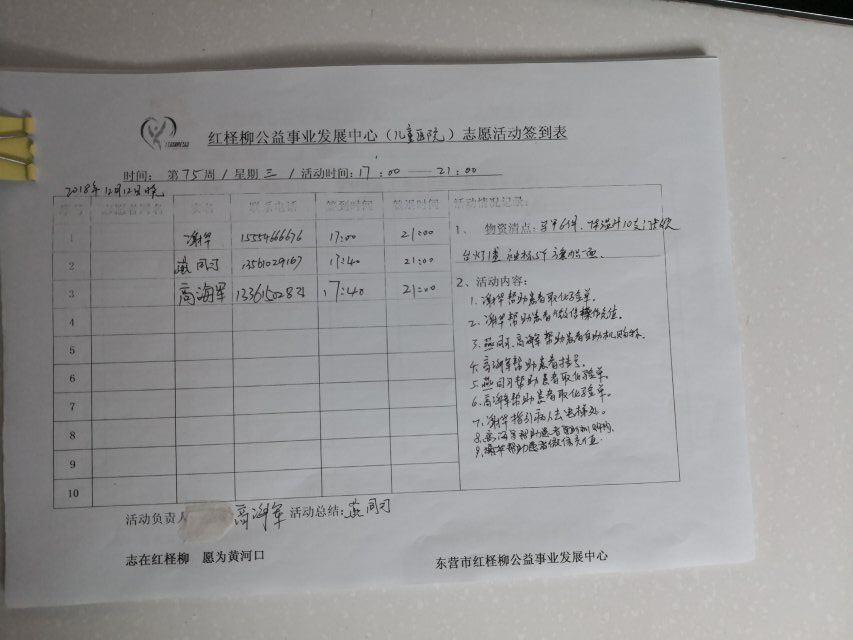 红柽柳公益事业发展中心（儿童医院）志愿活动签到表
时间：第75周/星期三/活动时间：17：00——21：00
2018年12月12日晚
序号 志愿者网名 实名 联系电话 签到时间 签退时间 活动情况记录：
1 谢华 15554666676 17:00 21:00
2 燕同习 13561029167 17:40 21:00
3 高海军 17:40 21:00
4
5
6
7
8
9
10
1、物资清点：马甲6件、
台灯1盏
2、活动内容：
1.谢华帮助患者取化验单。
2.谢华帮助患者微信操作充值。
3.燕同习、高海军帮助患者自助机购
4.高海军帮助患者挂号。
5.燕同习帮助患者取化验单。
6.高海军帮助患者取化验单。
7.谢华指引病人去电梯处。
8.高海军帮助患者自助机购
9.谢华帮助患者微信充值
活动负责人 高海军 活动总结：燕同习
志在红柽柳 愿为黄河口
东营市红柽柳公益事业发展中心